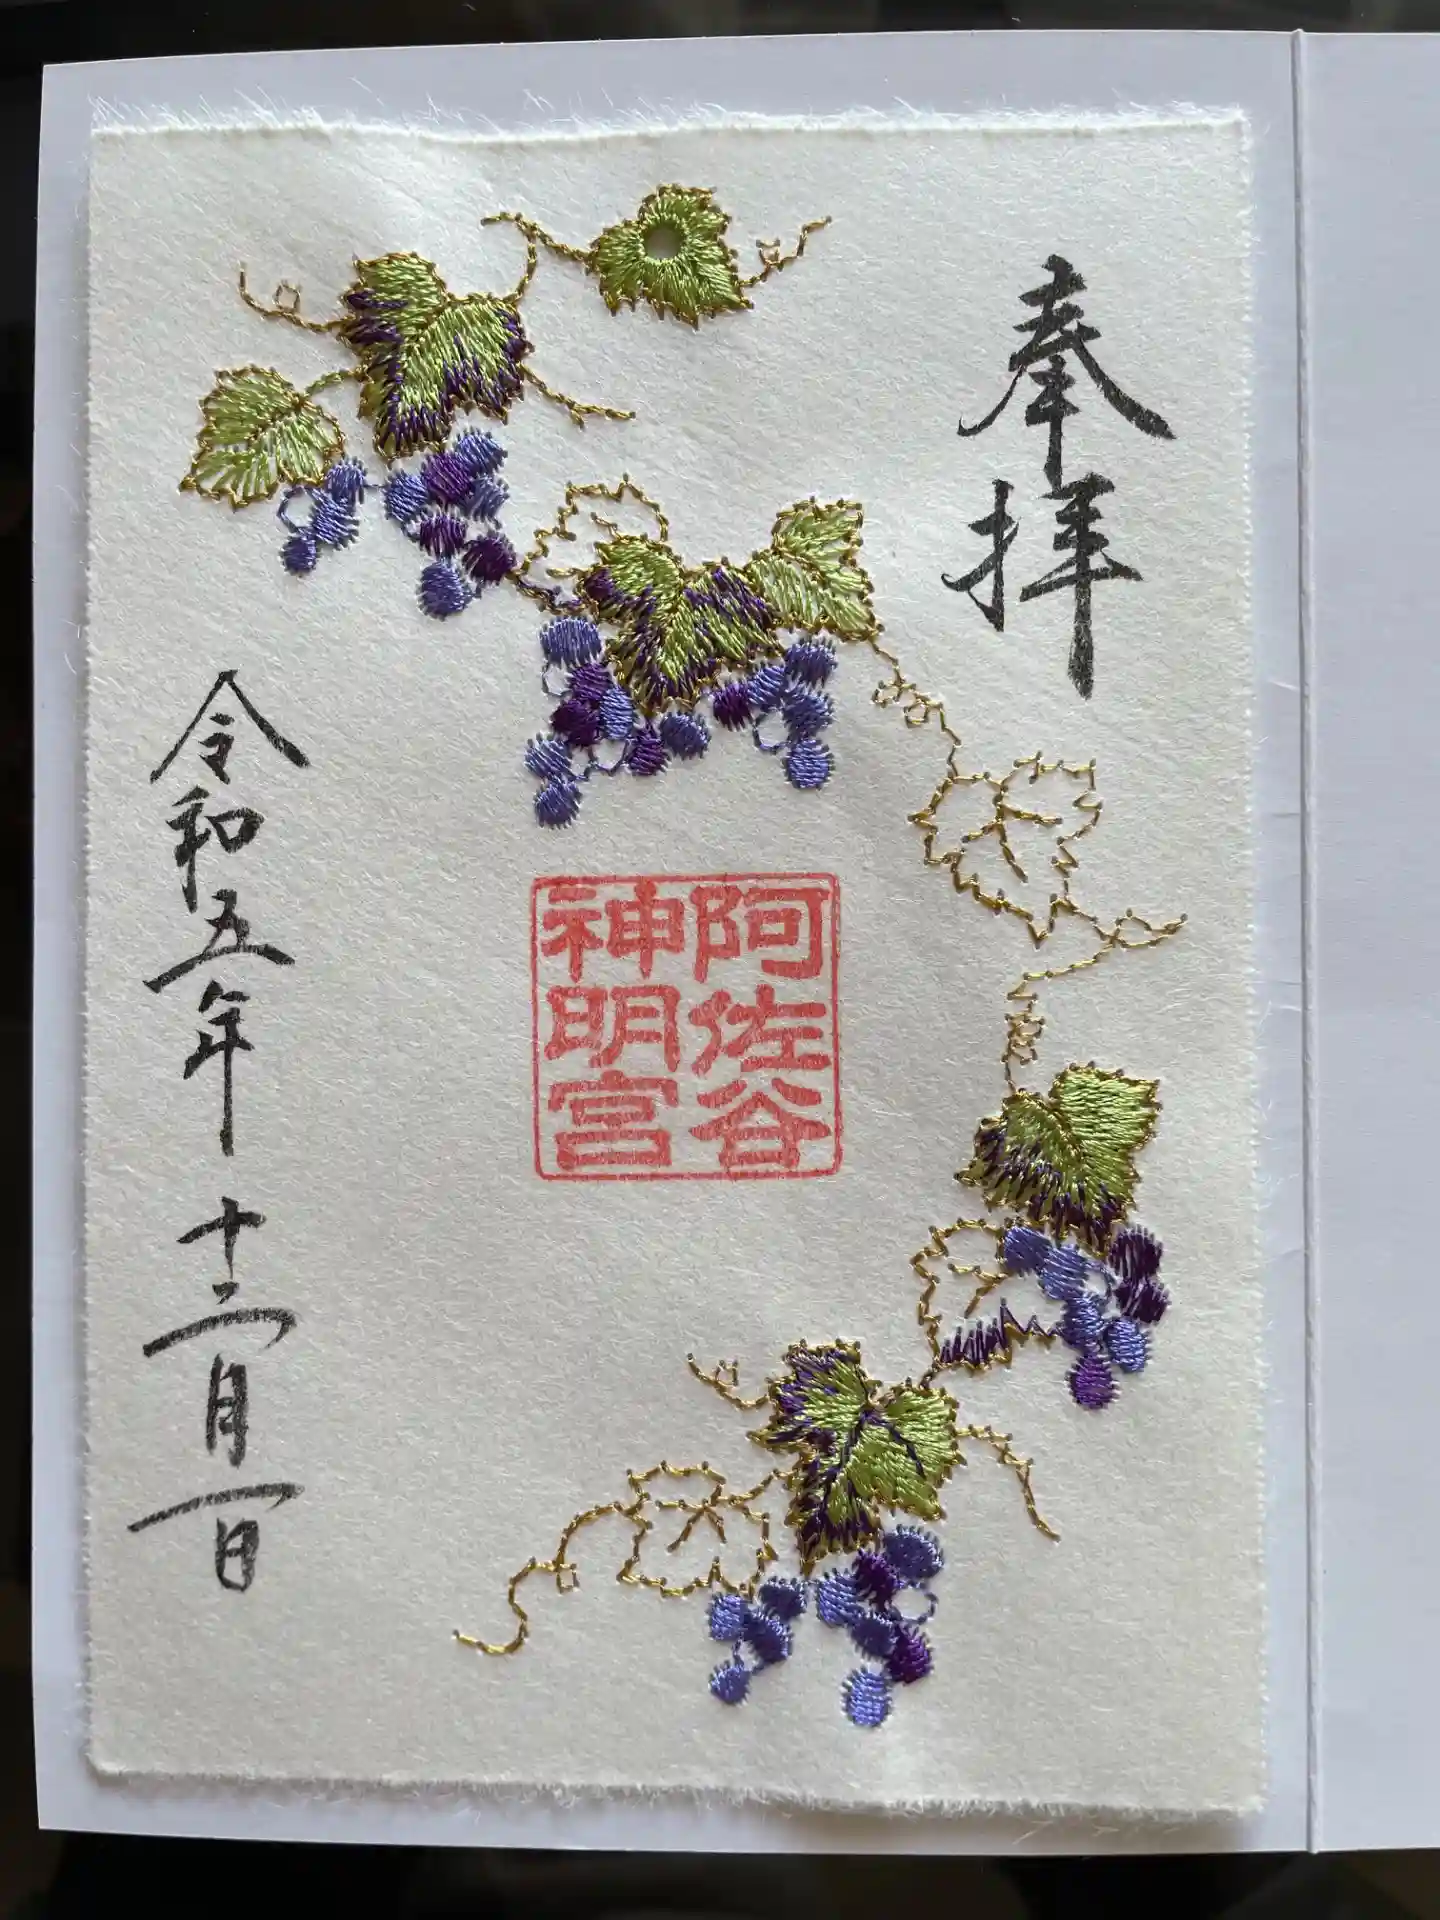 奉拝
阿佐谷
神明宮
令和五年十二月一日